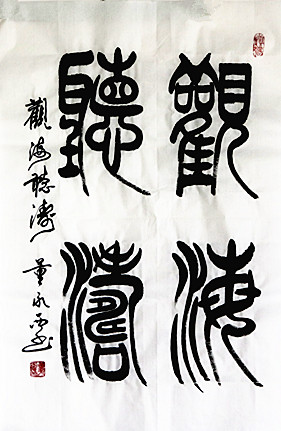 觀海
聽濤
觀海聽濤